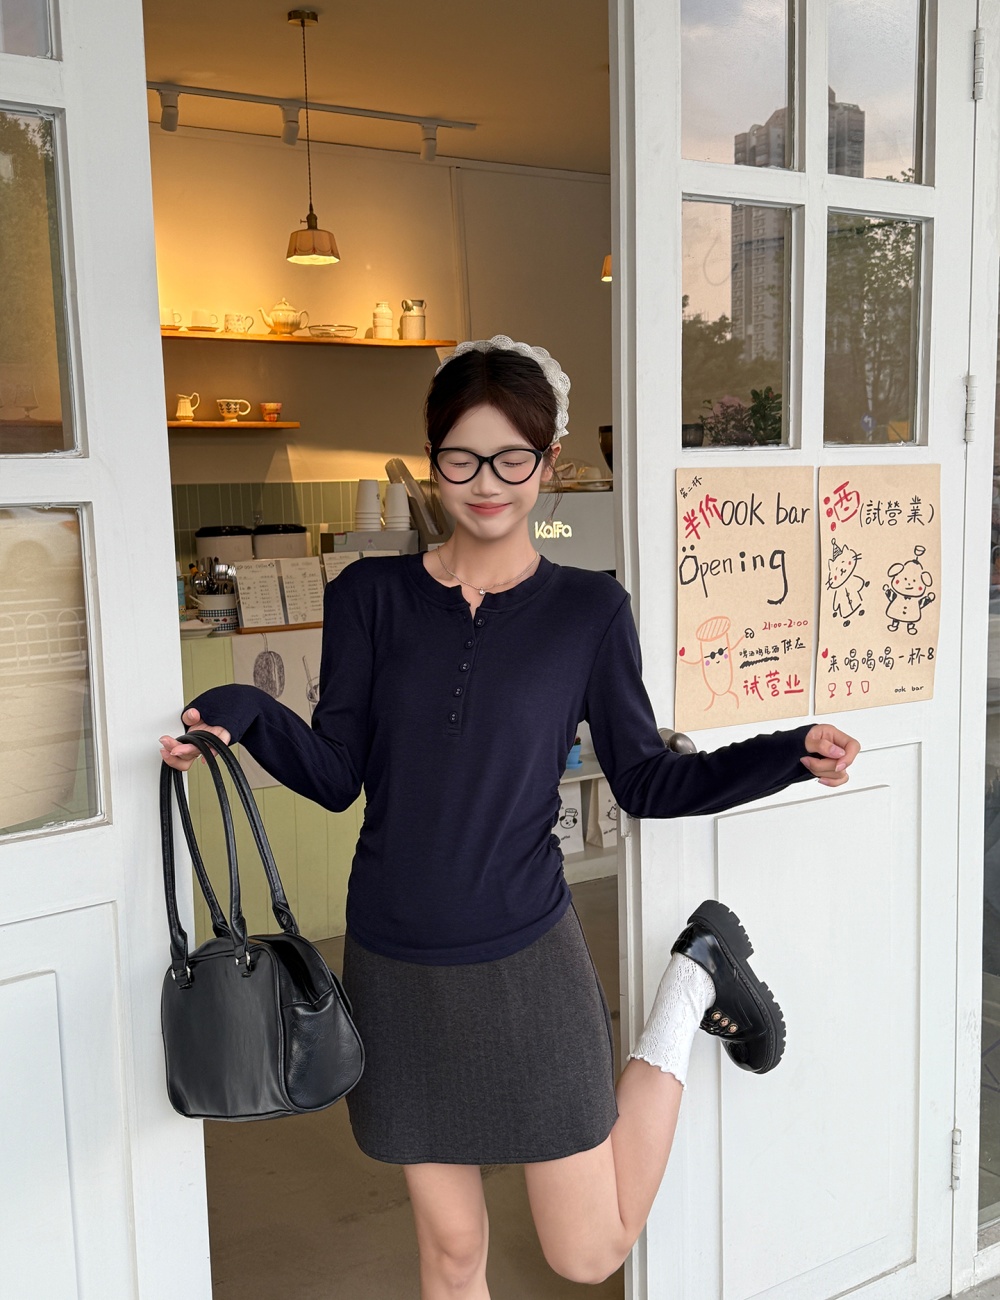 KaiFa
第二杯
半价 ook bar
Opening
21:00-2:00
供应
试营业
酒(試營業)
来喝喝喝一杯8
ook bar